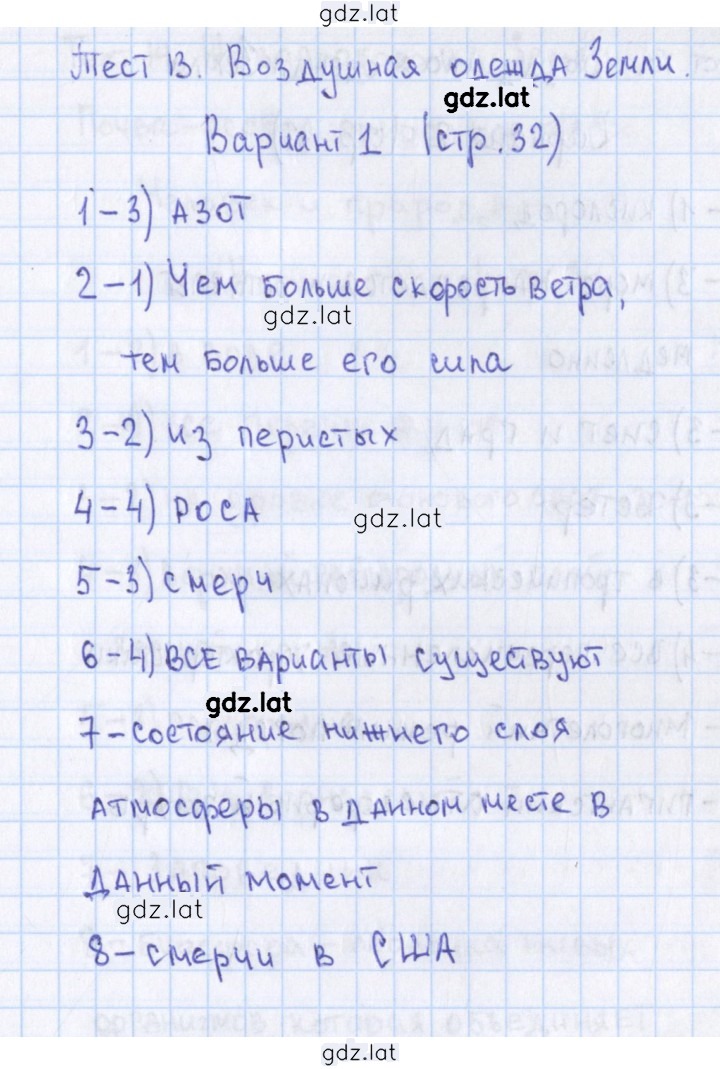 gdz.lat
Тест 13. Воздушная одежда Земли.
gdz.lat
Вариант 1 (стр. 32)
1-3) азот
2-1) Чем больше скорость ветра,
gdz.lat
тем больше его сила
3-2) из перистых
4-4) роса
gdz.lat
5-3) смерч
6-4) все варианты существуют
gdz.lat
7-состояние нижнего слоя
атмосферы в данном месте в
данный момент
gdz.lat
8-смерчи в США
gdz.lat